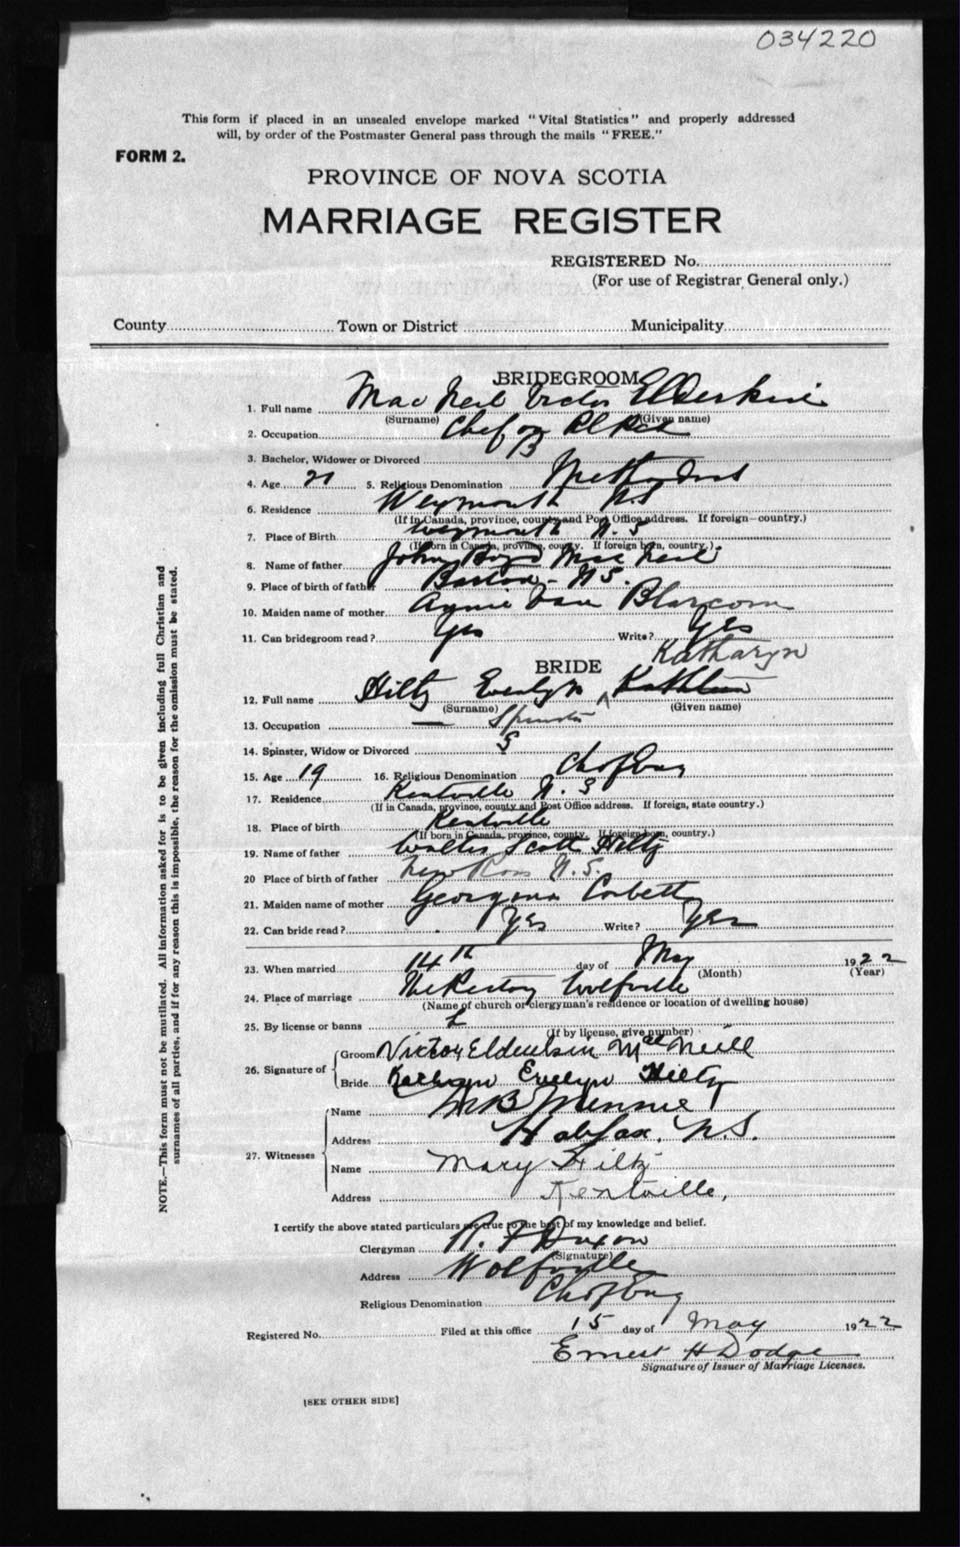 034220
This form if placed in an unsealed envelope marked "Vital Statistics" and properly addressed
will, by order of the Postmaster General pass through the mails "FREE."
FORM 2.
PROVINCE OF NOVA SCOTIA
MARRIAGE REGISTER
REGISTERED No.
(For use of Registrar General only.)
County Town or District Municipality
BRIDEGROOM
1. Full name Mac Neil Victor Elderkin
(Surname) (Given name)
2. Occupation Chef on
3. Bachelor, Widower or Divorced B
4. Age 21 5. Religious Denomination Methodist
6. Residence Weymouth N.S
(If in Canada, province, county and Post Office address. If foreign—country.)
7. Place of Birth Weymouth N S
(If born in Canada, province, county. If foreign born, country.)
8. Name of father John Boyd Mac Neil
9. Place of birth of father Barton - N.S.
10. Maiden name of mother Annie Van Blarcom
11. Can bridegroom read? Yes Write? Yes
Katharyn
BRIDE
12. Full name Hiltz Evelyn Kathleen
(Surname) (Given name)
13. Occupation — Spinster
14. Spinster, Widow or Divorced S
15. Age 19 16. Religious Denomination Ch of Eng
17. Residence Kentville N.S
(If in Canada, province, county and Post Office address. If foreign, state country.)
18. Place of birth Kentville
(If born in Canada, province, county. If foreign born, country.)
19. Name of father Walter Scott Hiltz
20 Place of birth of father New Ross N.S.
21. Maiden name of mother Georgena Corbett
22. Can bride read? Yes Write? Yes
23. When married 14th day of May 1922
(Month) (Year)
24. Place of marriage The Rectory Wolfville
(Name of church or clergyman's residence or location of dwelling house)
25. By license or banns L
(If by license, give number)
26. Signature of Groom Victor Elderkin MacNeill
Bride Kathryn Evelyn Hiltz
27. Witnesses Name
Address Halifax, N.S.
Name Mary Hiltz
Address Kentville,
I certify the above stated particulars are true to the best of my knowledge and belief.
Clergyman R. F Dixon
(Signature)
Address Wolfville
Religious Denomination Ch of Eng
Registered No. Filed at this office 15 day of May 1922
Ernest H Dodge
Signature of Issuer of Marriage Licenses.
[SEE OTHER SIDE]
NOTE.—This form must not be mutilated. All information asked for is to be given including full Christian and
surnames of all parties, and if for any reason this is impossible, the reason for the omission must be stated.